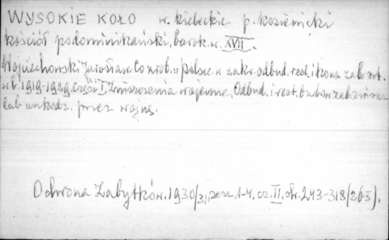 WYSOKIE KOŁO w. kieleckie p. kozienicki
kościół podominikański, barok. w. XVII.
Wojciechowski Jarosław. Co zrob. w Polsce w zakr. odbud. rest. i kons. zab. szt.
w l. 1919-1929. Część I. Zniszczenia wojenne. Odbud. i rest. budow. zabisz.
lub uszkodz. przez wojnę.
Ochrona Zabytków. 1930/31, zesz. 1-4. cz. II. str. 243-318/263).